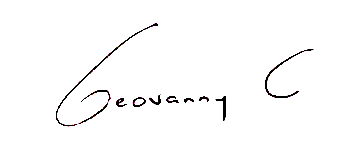 Geovanny C